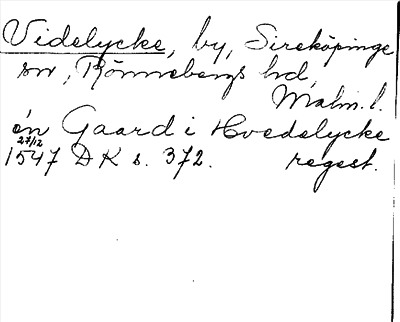 Videlycke, by, Sireköpinge
sn, Rönnebergs hd,
Malm. l.
én Gaard i Hvedelycke
27/12
1547 DK s. 372. regest.